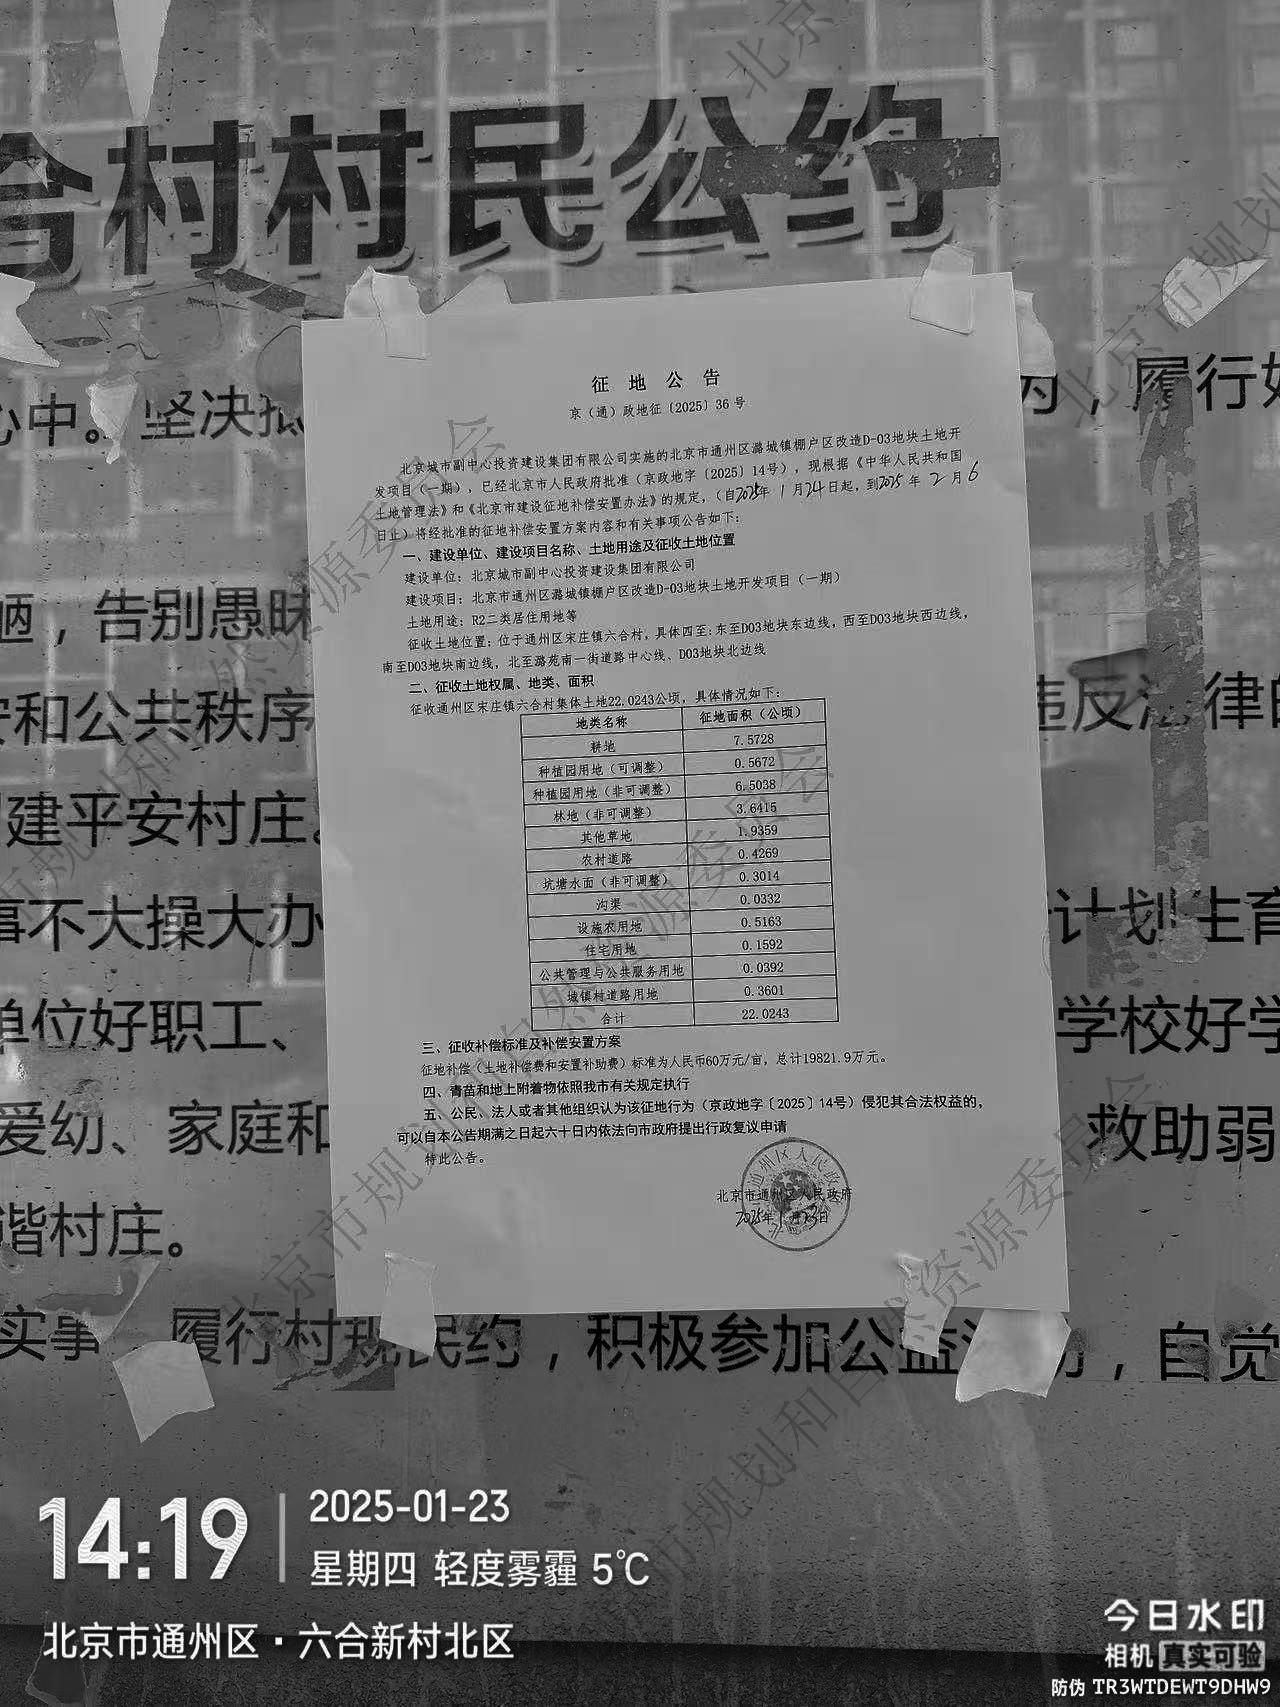 合村村民公约
心中。坚决抵
为，履行好
征 地 公 告
京（通）政地征〔2025〕36 号
北京城市副中心投资建设集团有限公司实施的北京市通州区潞城镇棚户区改造D-03地块土地开
发项目（一期），已经北京市人民政府批准（京政地字〔2025〕14号），现根据《中华人民共和国
土地管理法》和《北京市建设征地补偿安置办法》的规定，（自2025年 1 月24日起，到2025 年 2 月 6
日止）将经批准的征地补偿安置方案内容和有关事项公告如下：
一、建设单位、建设项目名称、土地用途及征收土地位置
建设单位：北京城市副中心投资建设集团有限公司
建设项目：北京市通州区潞城镇棚户区改造D-03地块土地开发项目（一期）
土地用途：R2二类居住用地等
征收土地位置：位于通州区宋庄镇六合村，具体四至：东至D03地块东边线，西至D03地块西边线，
南至D03地块南边线，北至潞苑南一街道路中心线、D03地块北边线
二、征收土地权属、地类、面积
征收通州区宋庄镇六合村集体土地22.0243公顷，具体情况如下：
地类名称 征地面积（公顷）
耕地 7.5728
种植园用地（可调整） 0.5672
种植园用地（非可调整） 6.5038
林地（非可调整） 3.6415
其他草地 1.9359
农村道路 0.4269
坑塘水面（非可调整） 0.3014
沟渠 0.0332
设施农用地 0.5163
住宅用地 0.1592
公共管理与公共服务用地 0.0392
城镇村道路用地 0.3601
合计 22.0243
三、征收补偿标准及补偿安置方案
征地补偿（土地补偿费和安置补助费）标准为人民币60万元/亩，总计19821.9万元。
四、青苗和地上附着物依照我市有关规定执行
五、公民、法人或者其他组织认为该征地行为（京政地字〔2025〕14号）侵犯其合法权益的，
可以自本公告期满之日起六十日内依法向市政府提出行政复议申请
特此公告。
北京市通州区人民政府
2025年1月23日
陋，告别愚昧
安和公共秩序
违反法律的
建平安村庄。
事不大操大办
计划生育
单位好职工、
学校好学
爱幼、家庭和
救助弱
谐村庄。
实事，履行村规民约，积极参加公益活动，自觉
14:19
2025-01-23
星期四 轻度雾霾 5℃
北京市通州区·六合新村北区
今日水印
相机 真实可验
防伪 TR3WTDEWT9DHW9
北京市规划和自然资源委员会